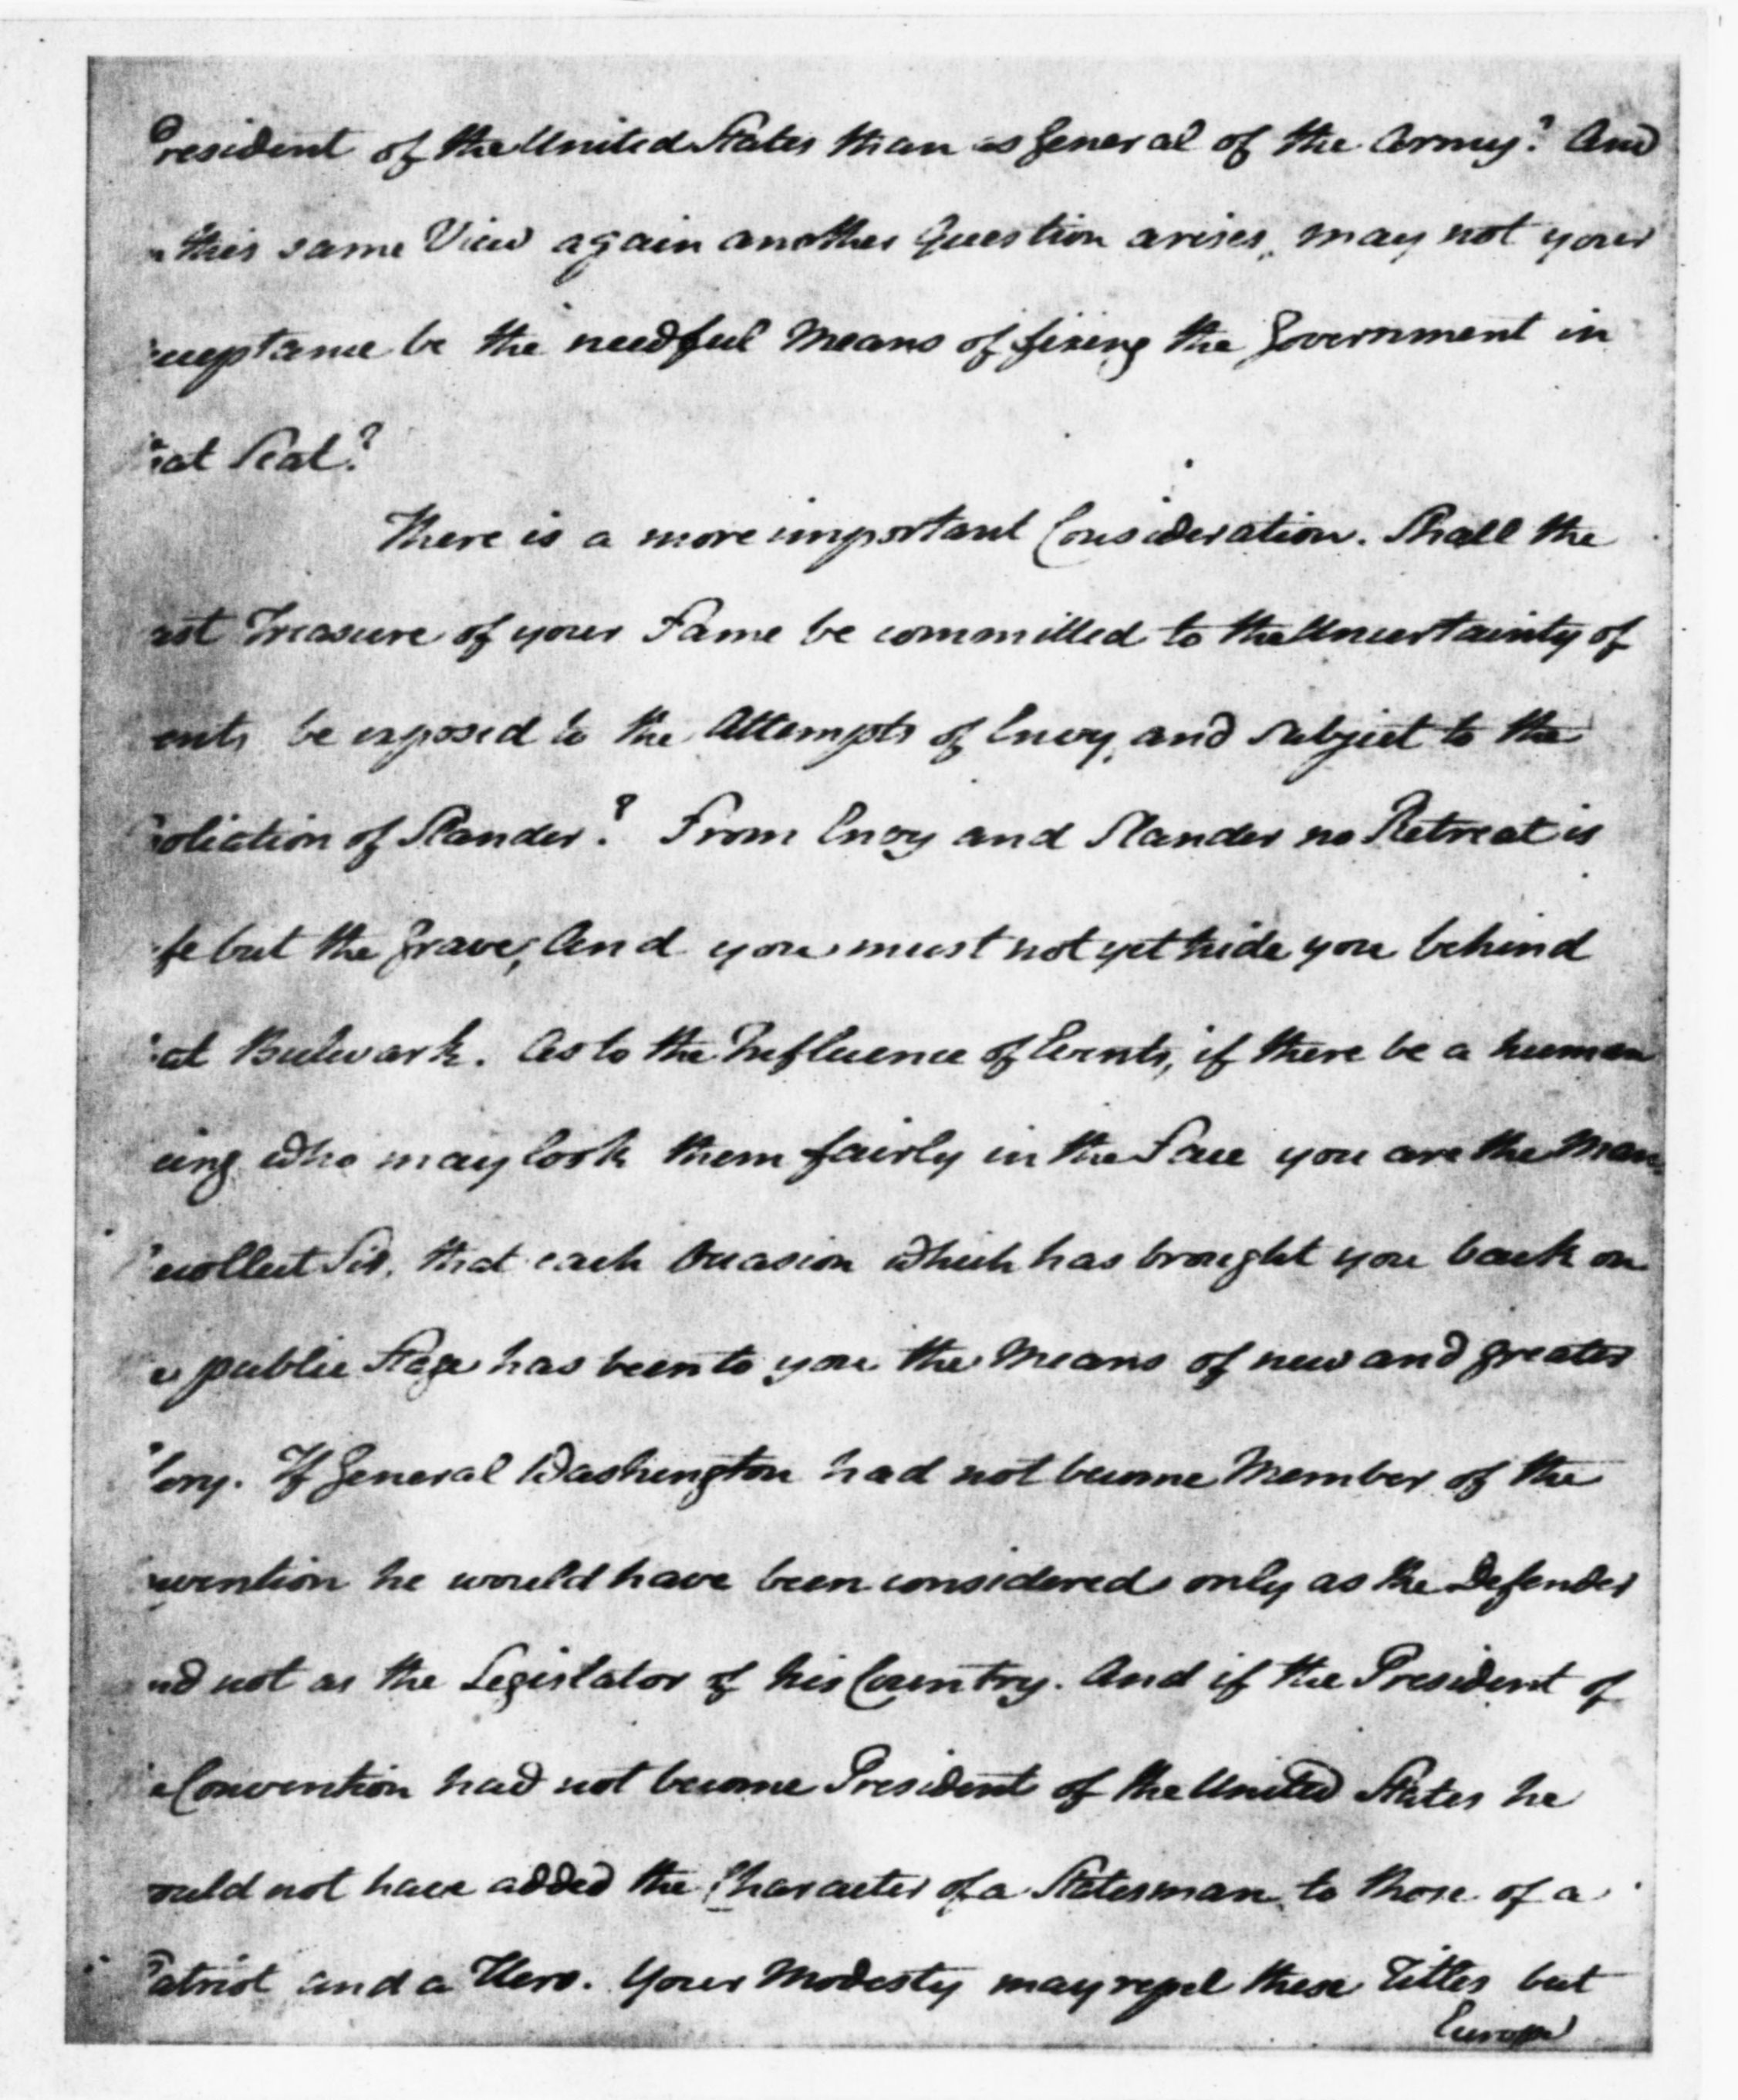 President of the United States than as General of the Army? And
this same View again another Question arises, may not your
cceptance be the needful Means of fixing the Government in
at Seat?
There is a more important Consideration. Shall the
ast Treasure of your Fame be committed to the Uncertainty of
ents be exposed to the Attempts of Envy, and subject to the
oliation of Slander? From Envy and Slander no Retreat is
fe but the Grave, And you must not yet hide you behind
at Bulwark. As to the Influence of Events, if there be a human
eing who may look them fairly in the Face you are the Man.
ecollect Sir, that each Occasion which has brought you back on
e public Stage has been to you the Means of new and greater
lory. If General Washington had not become Member of the
nvention he would have been considered only as the Defender
nd not as the Legislator of his Country. And if the President of
e Convention had not become President of the United States he
ould not have added the Character of a Statesman to those of a
Patriot and a Hero. Your Modesty may repel these Titles but
Europe